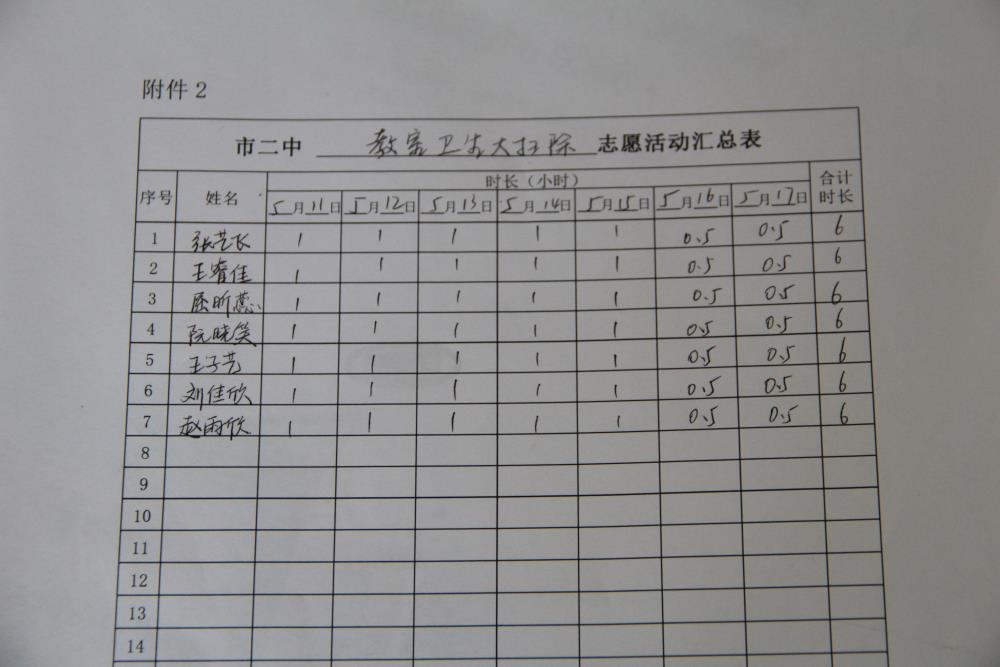 附件2
市二中 教室卫生大扫除 志愿活动汇总表
序号 姓名 时长（小时） 合计时长
5月11日 5月12日 5月13日 5月14日 5月15日 5月16日 5月17日
1 张艺飞 1 1 1 1 1 0.5 0.5 6
2 王睿佳 1 1 1 1 1 0.5 0.5 6
3 屈昕蕊 1 1 1 1 1 0.5 0.5 6
4 阮晓笑 1 1 1 1 1 0.5 0.5 6
5 王子艺 1 1 1 1 1 0.5 0.5 6
6 刘佳欣 1 1 1 1 1 0.5 0.5 6
7 赵雨欣 1 1 1 1 1 0.5 0.5 6
8
9
10
11
12
13
14